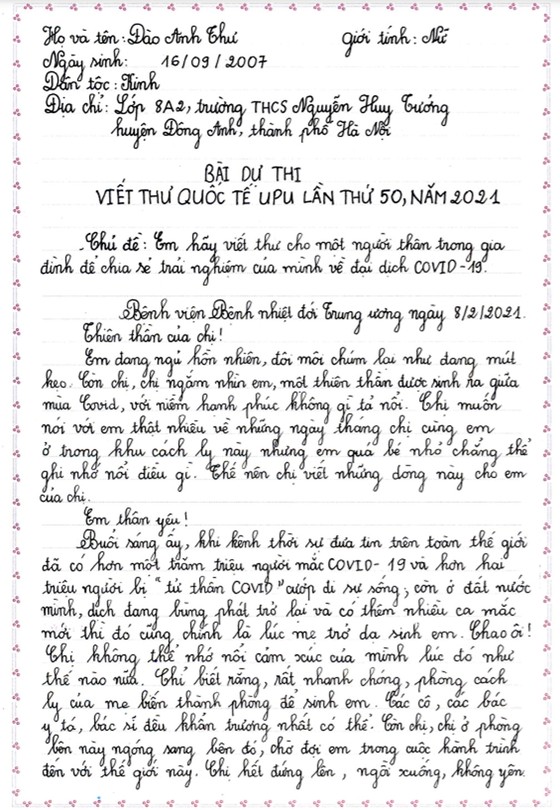 Họ và tên: Đào Anh Thư giới tính: Nữ
Ngày sinh: 16/09/2007
Dân tộc: Kinh
Địa chỉ: Lớp 8A2, trường THCS Nguyễn Huy Tưởng
huyện Đông Anh, thành phố Hà Nội
BÀI DỰ THI
VIẾT THƯ QUỐC TẾ UPU LẦN THỨ 50, NĂM 2021
Chủ đề: Em hãy viết thư cho một người thân trong gia
đình để chia sẻ trải nghiệm của mình về đại dịch COVID-19.
Bệnh viện Bệnh nhiệt đới Trung ương ngày 8/2/2021.
Thiên thần của chị!
Em đang ngủ hồn nhiên, đôi môi chúm lại như đang mút
kẹo. Còn chị, chị ngắm nhìn em, một thiên thần được sinh ra giữa
mùa Covid, với niềm hạnh phúc không gì tả nổi. Chị muốn
nói với em thật nhiều về những ngày tháng chị cùng em
ở trong khu cách ly này nhưng em quá bé nhỏ chẳng thể
ghi nhớ nổi điều gì. Thế nên chị viết những dòng này cho em
của chị.
Em thân yêu!
Buổi sáng ấy, khi kênh thời sự đưa tin trên toàn thế giới
đã có hơn một trăm triệu người mắc COVID-19 và hơn hai
triệu người bị "tử thần COVID" cướp đi sự sống, còn ở đất nước
mình, dịch đang bùng phát trở lại và có thêm nhiều ca mắc
mới thì đó cũng chính là lúc mẹ trở dạ sinh em. Chao ôi!
Chị không thể nhớ nổi cảm xúc của mình lúc đó như
thế nào nữa. Chỉ biết rằng, rất nhanh chóng, phòng cách
ly của mẹ biến thành phòng để sinh em. Các cô, các bác
y tá, bác sĩ đều khẩn trương nhất có thể. Còn chị, chị ở phòng
bên này ngóng sang bên đó, chờ đợi em trong cuộc hành trình
đến với thế giới này. Chị hết đứng lên, ngồi xuống, không yên.